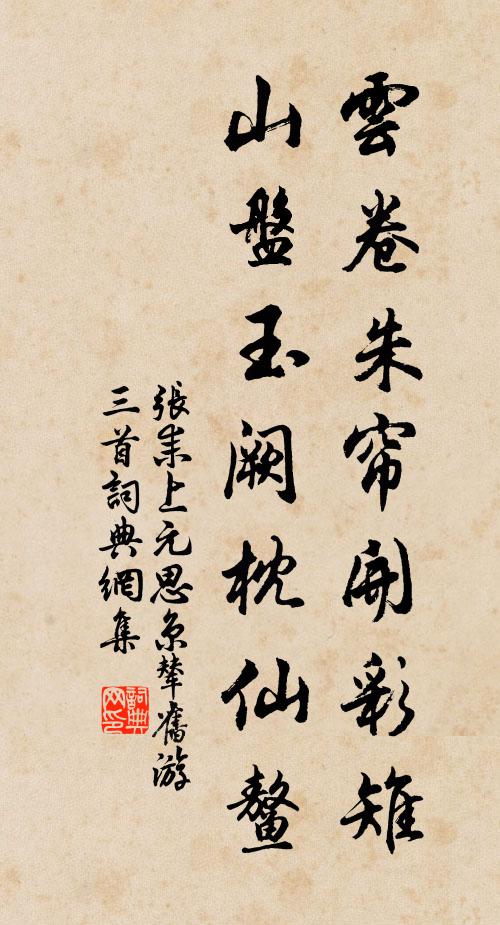 雲卷朱帘開彩雉
山盤玉闕枕仙鼇
張耒上元思京輦舊游
三首詞典網集
詞典
网印